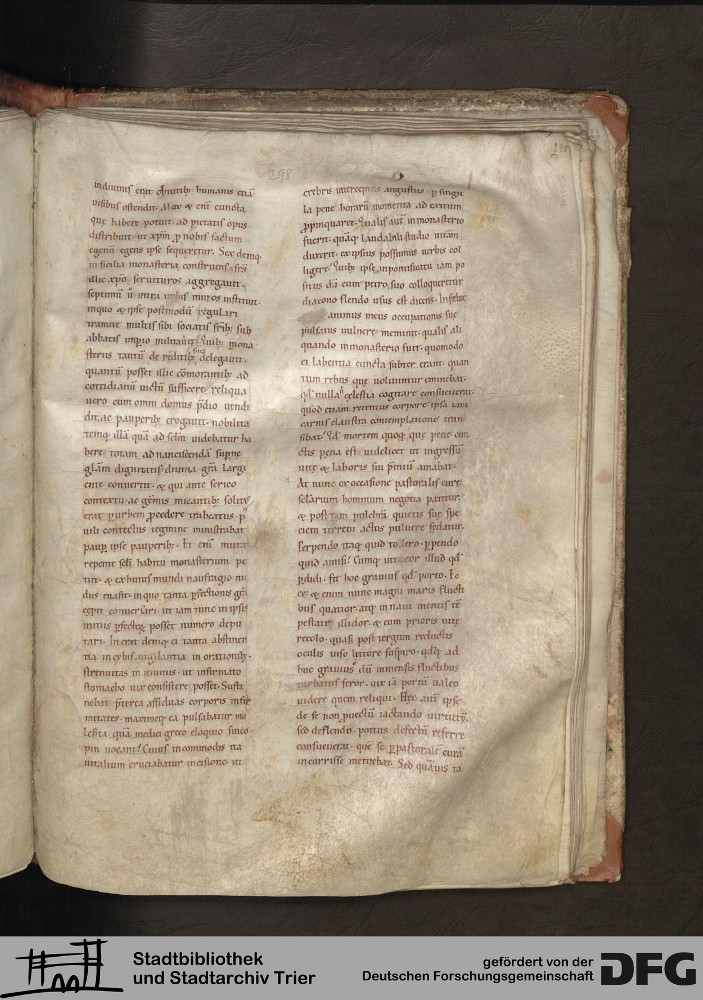 298
298
indiuinis erit
uisibus ostendit. Mox & eni cuncta
quę habere potuit ad pietatis opus
distribuit. ut xp̄m ꝓ nobis factum
egenū egens ipse sequeretur. Sex deniq;
in sicilia monasteria construens. fr̄s
illic xp̄o seruituros aggregauit.
septimū ū intra urbis muros instituit.
inquo & ipse postmodū regulari
tramite multis sibi sociatis fr̄ib; sub
abbatis impio militauit. Quib; mona
steriis tantū de reditib; delegauit.
quantū posset illic cōmorantib; ad
cottidianū uictū sufficere. reliqua
uero cum omni domus p̄dio uendi
dit. ac pauperib; erogauit. nobilita
temq; illā quā ad sclm̄ uidebatur ha
bere. totam ad nanciscendā supne
glām dignitatis diuina gr̄a largi
ente conuertit. & qui ante serico
contextu. ac gēmis micantib; solit'
erat ꝑ urbem procedere trabeatus. p'
uili contectus tegmine ministrabat
paup̄ ipse pauperib;. Et eni muta
repente scl̄i habitu monasterium pe
tiit. & ex huius mundi naufragio nu
dus euasit. inquo tanta ꝑfectionis gr̄a
cępit conuersari. ut iam tunc in ipsis
initiis ꝑfectoꝝ posset numero depu
tari. Inerat deniq; ei tanta abstinen
tia in cybis. uigilantia in orationib;.
strenuitas in ieiuniis. ut infirmato
stomacho uix consistere posset. Susti
nebat p̄terea assiduas corporis infir
mitates. maximeq; ea pulsabatur mo
lestia. quā medici greco eloquio sinco
pin uocant. Cuius incommodis ita
uitalium cruciabatur incisione. ut
crebris interceptus angustiis. ꝑ singu
la pene horarū momenta ad exitum
ꝓpinquaret. Qualis aut̄ in monasterio
fuerit. quāq; laudabili studio uitam
duxerit. ex ipsius possumus uerbis col
ligere. Quib; ipse inpontificatu iam po
situs dū cum petro suo colloqueretur
diacono flendo usus est dicens. Infelix
animus meus occupationis suę
pulsatus uulnere meminit. qualis ali
quando inmonasterio fuit. quomodo
ei labentia cuncta subter erant. quan
tum rebus quę uoluuntur eminebat.
qd' nulla nisi celestia cogitare consueuerat.
quod etiam retentus corpore ipsa iam
carnis claustra contemplatione tran
sibat. Qd' mortem quoq; quę pene cun
ctis pena est. uidelicet ut ingressū
uitę & laboris sui p̄miū amabat.
At nunc ex occasione pastoralis curę
sęcularium hominum negotia patitur.
& post tam pulchrā quietis suę spe
ciem terreni actus puluere fedatur.
Perpendo itaq; quid tolero. ꝑpendo
quid amisi. Cumq; intueor illud qd'
ꝑdidi. fit hoc grauius qd' porto. Ec
ce & enim nunc magni maris flucti
bus quatior. atq; in naui mentis tē
pestatis illidor. & cum prioris uitę
recolo. quasi post tergum reductis
oculis uiso littore suspiro. qdq; ad
huc grauius dū inmensis fluctibus
turbatus feror. uix iā portū ualeo
uidere quem reliqui. Hęc aut̄ ipse
de se non ꝓfectū iactando uirtutū.
sed deflendo potius defectū referre
consueuerat. quę se ꝑ pastorale curā
incurrisse metuebat. Sed quāuis ta
Stadtbibliothek
und Stadtarchiv Trier
gefördert von der
Deutschen Forschungsgemeinschaft
DFG